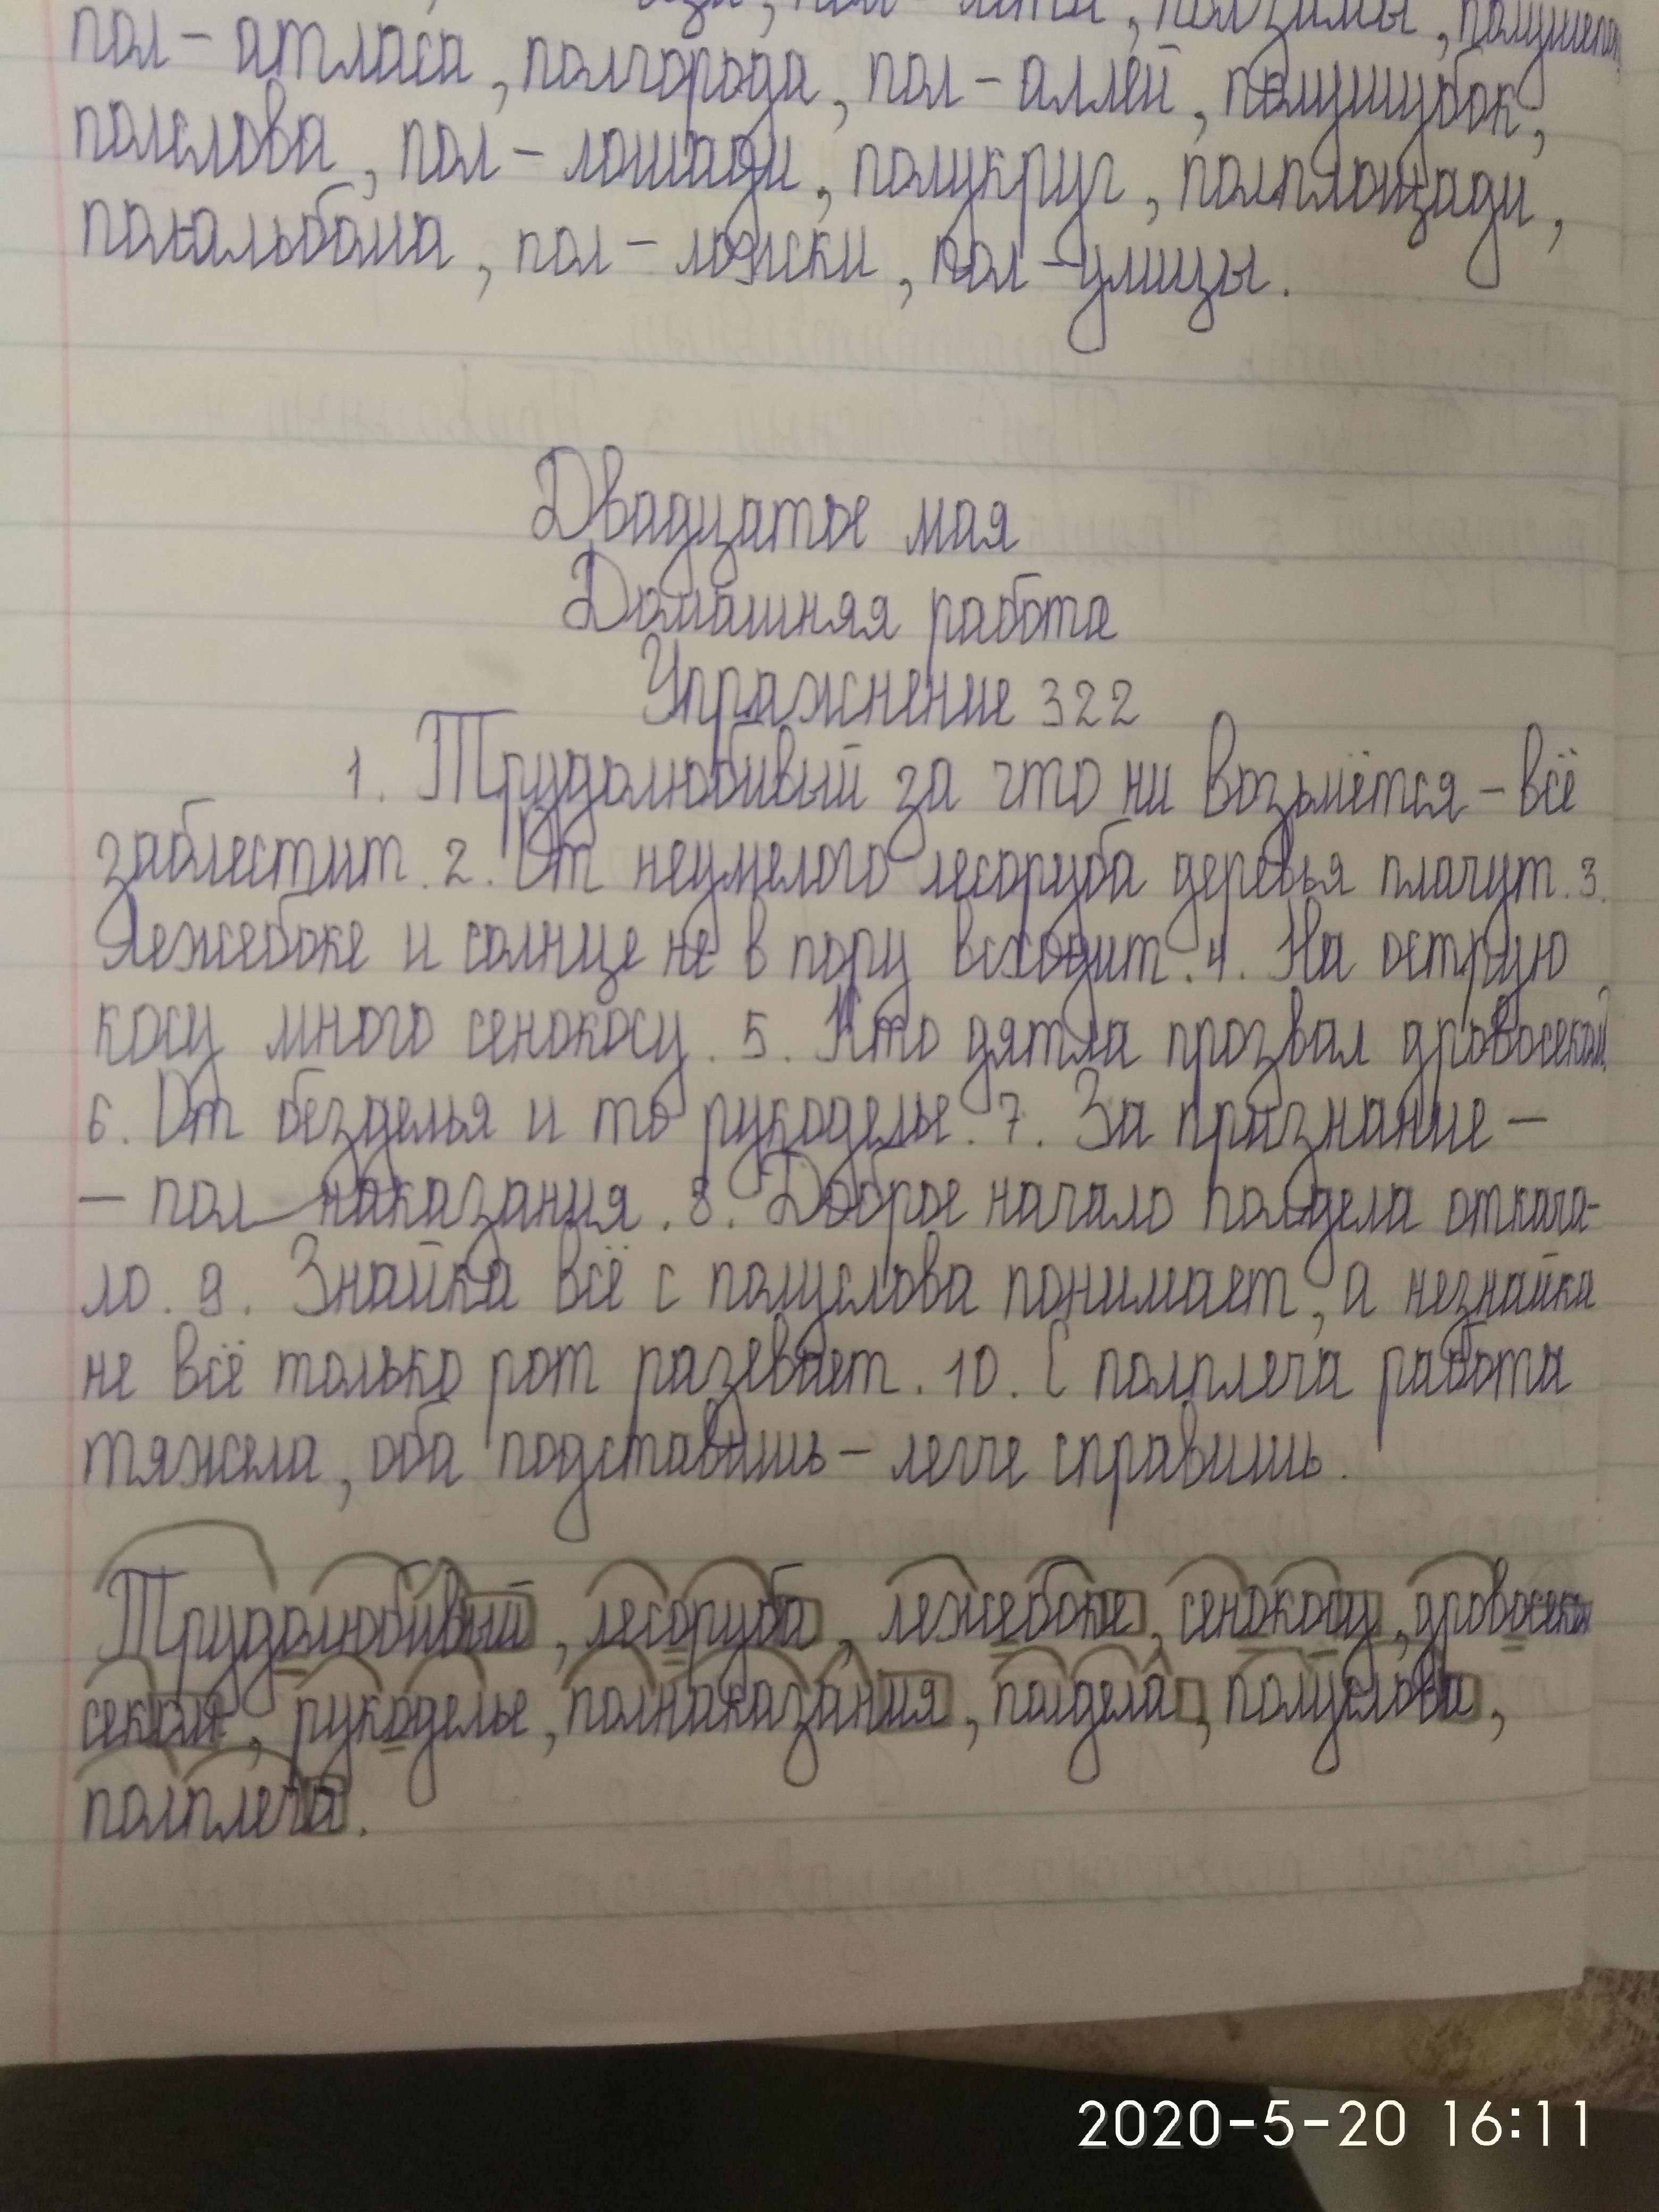 пол-лета, ползимы,
пол-атласа, полгорода, пол-аллей, полушубок,
полслова, пол-лошади, полукруг, полплощади,
полальбома, пол-ложки, пол-улицы.
Двадцатое мая
Домашняя работа
Упражнение 322
1. Трудолюбивый за что ни возьмётся - всё
заблестит. 2. От неумелого лесоруба деревья плачут. 3.
Лежебоке и солнце не в пору всходит. 4. На острую
косу много сенокосу. 5. Кто дятла прозвал дровосеком?
6. От безделья и то рукоделье. 7. За признание -
- пол наказания. 8. Доброе начало полдела откача-
ло. 9. Знайка всё с полуслова понимает, а незнайка
не всё только рот разевает. 10. С полплеча работа
тяжела, оба подставишь - легче справишь.
Трудолюбивый, лесоруба, лежебоке, сенокосу, дровосеком
секом, рукоделье, полнаказания, полдела, полуслова,
полплеча.
2020-5-20 16:11